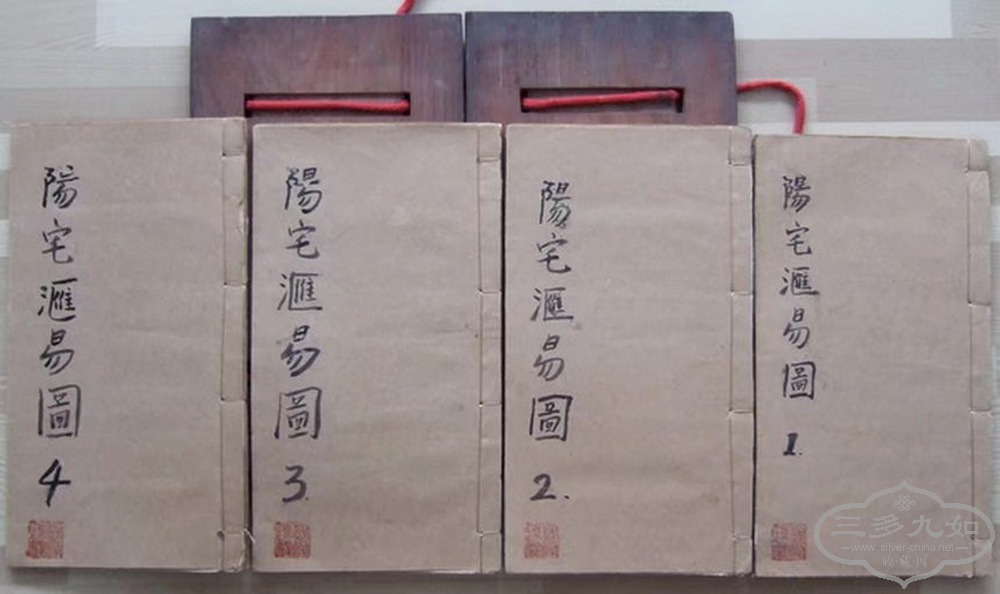 陽宅滙易圖
1.
陽宅滙易圖
2.
陽宅滙易圖
3.
陽宅滙易圖
4
三多九如
www.silver-china.net
收·藏·图